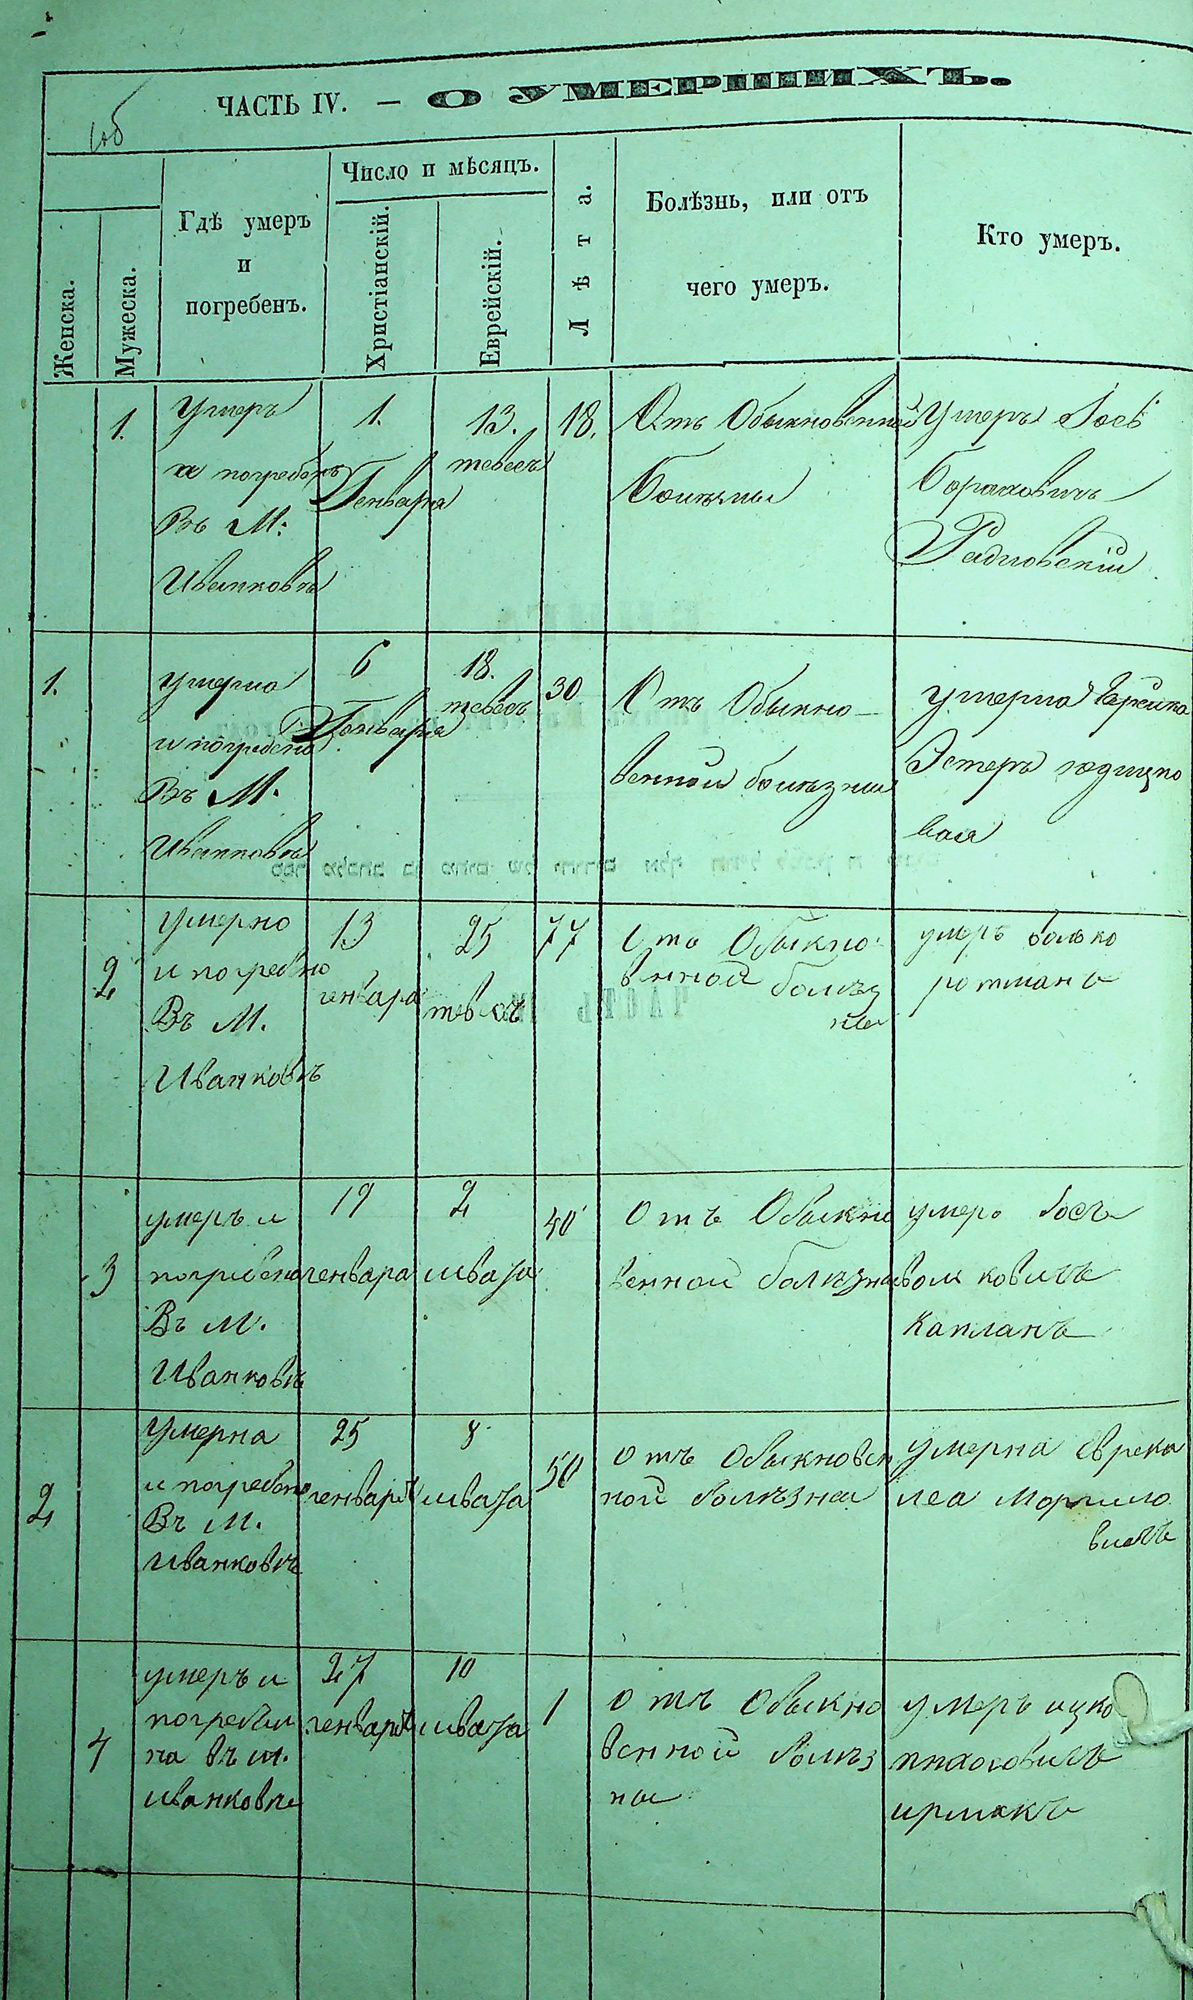 ЧАСТЬ IV. — О УМЕРШИХЪ.
Женска.
Мужеска.
Гдѣ умеръ
и
погребенъ.
Число и мѣсяцъ.
Христіанскій.
Еврейскій.
Лѣта.
Болѣзнь, или отъ
чего умеръ.
Кто умеръ.
1.
Умеръ
и погребенъ
Въ М:
Иванковѣ
1.
Генваря
13.
тевесъ
18.
Отъ Обыкновенной
болѣзны
Умеръ Іось
Бораховичь
Радловскій
1.
умерла
и погребено
Въ М.
Иванковѣ
6
Генваря
18.
тевесъ
30
Отъ Обыкно-
венной болѣзни
умерла Еврейка
Эстеръ
вая
2
умерло
и погребно
Въ М.
Иванковѣ
13
генвара
25
тевесъ
77
Отъ Обыкно
венной болѣз
ни
умеръ волько
ротманъ
3
умеръ и
погребено
Въ М.
Иванковѣ
19
генвара
2
швата
40
Отъ Обыкно
венной болѣзни
умеръ
вольковичъ
Капланъ
2
Умерла
и погребено
Въ М.
Иванковѣ
25
генваря
8
швата
50
отъ Обыкновен
ной болѣзни
умерла Еврека
леа
4
умеръ и
погребен
на въ м.
иванковѣ
27
генваря
10
швата
1
отъ Обыкно
венной болѣз
ны
умеръ ицко
пинхосовичъ
ирмакъ